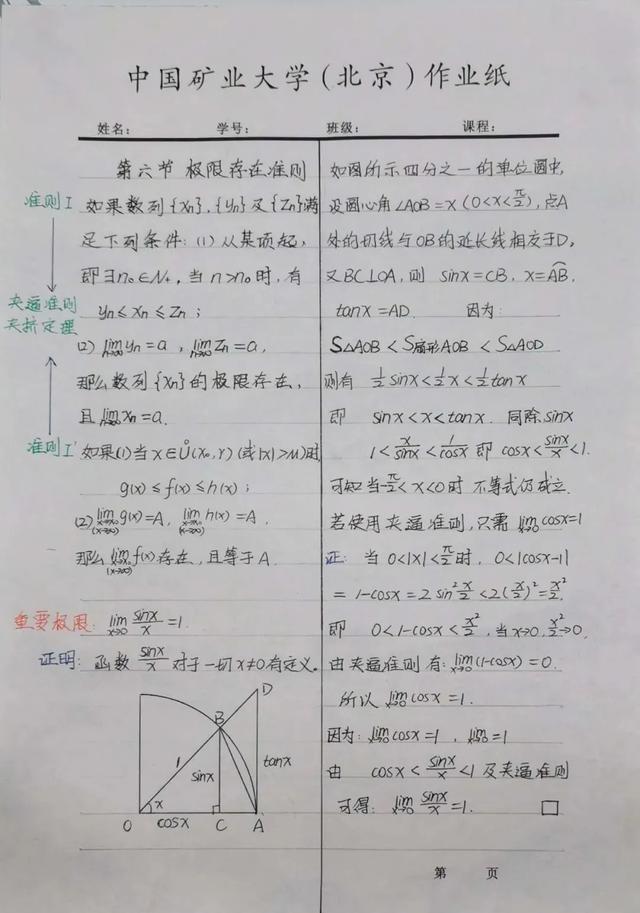 中国矿业大学(北京)作业纸
姓名: 学号: 班级: 课程:
第六节 极限存在准则
准则I 如果数列{xn},{yn}及{zn}满
足下列条件:(1)从某项起,
即∃n₀∈N₊,当n>n₀时,有
夹逼准则
夹挤定理
yn≤xn≤zn;
(2) lim(n→∞) yn=a, lim(n→∞) zn=a,
那么数列{xn}的极限存在,
且 lim(n→∞) xn=a.
准则I' 如果(1)当x∈Ů(x₀,r)(或|x|>M)时
g(x)≤f(x)≤h(x);
(2) lim(x→x₀)(x→∞) g(x)=A, lim(x→x₀)(x→∞) h(x)=A,
那么 lim(x→x₀)(x→∞) f(x)存在,且等于A.
重要极限: lim(x→0) sinx/x=1.
证明: 函数 sinx/x 对于一切x≠0有定义.
D
B
1
sinx
tanx
x
O cosx C A
如图所示四分之一的单位圆中,
设圆心角∠AOB=x(0<x<π/2),点A
外的切线与OB的延长线相交于D,
又BC⊥OA,则 sinx=CB, x=A͡B,
tanx=AD. 因为:
S△AOB<S扇形AOB<S△AOD
则有 1/2 sinx<1/2 x<1/2 tanx
即 sinx<x<tanx. 同除sinx
1<x/sinx<1/cosx 即 cosx<sinx/x<1.
可知当-π/2<x<0时 不等式仍成立.
若使用夹逼准则,只需 lim(x→0) cosx=1
证: 当0<|x|<π/2时, 0<|cosx-1|
=1-cosx=2sin²x/2<2(x/2)²=x²/2.
即 0<1-cosx<x²/2,当x→0,x²/2→0.
由夹逼准则有: lim(x→0)(1-cosx)=0.
所以 lim(x→0) cosx=1.
因为: lim(x→0) cosx=1, lim(x→0)=1
由 cosx<sinx/x<1及夹逼准则
可得: lim(x→0) sinx/x=1. □
第 页